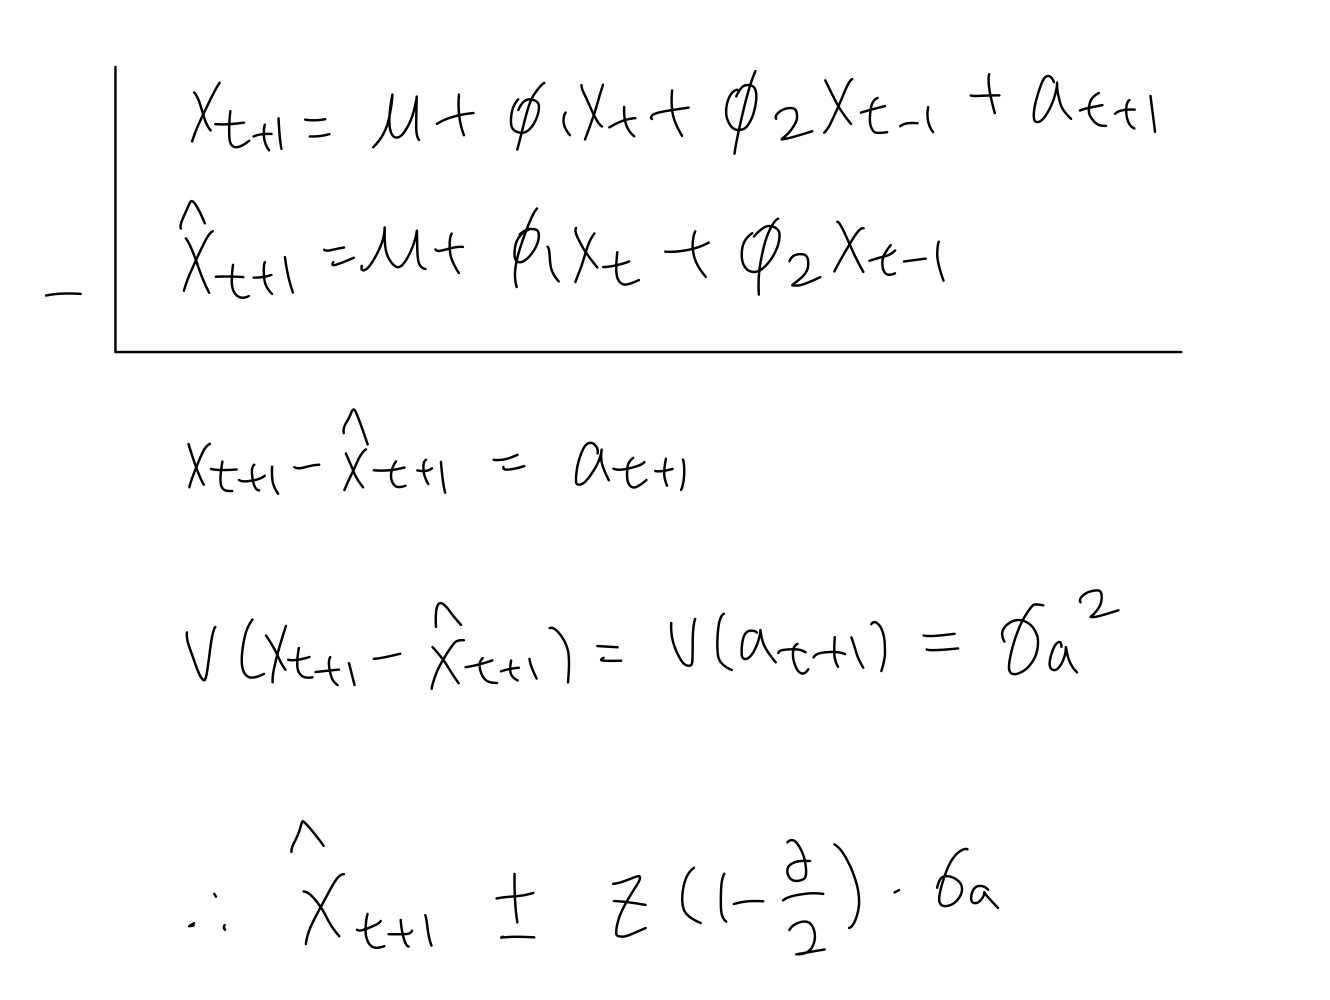 x_{t+1} = μ + φ_1 x_t + φ_2 x_{t-1} + a_{t+1}
x̂_{t+1} = μ + φ_1 x_t + φ_2 x_{t-1}
−
x_{t+1} − x̂_{t+1} = a_{t+1}
V(x_{t+1} − x̂_{t+1}) = V(a_{t+1}) = σ_a^2
∴ x̂_{t+1} ± z(1 − ∂/2) · σ_a